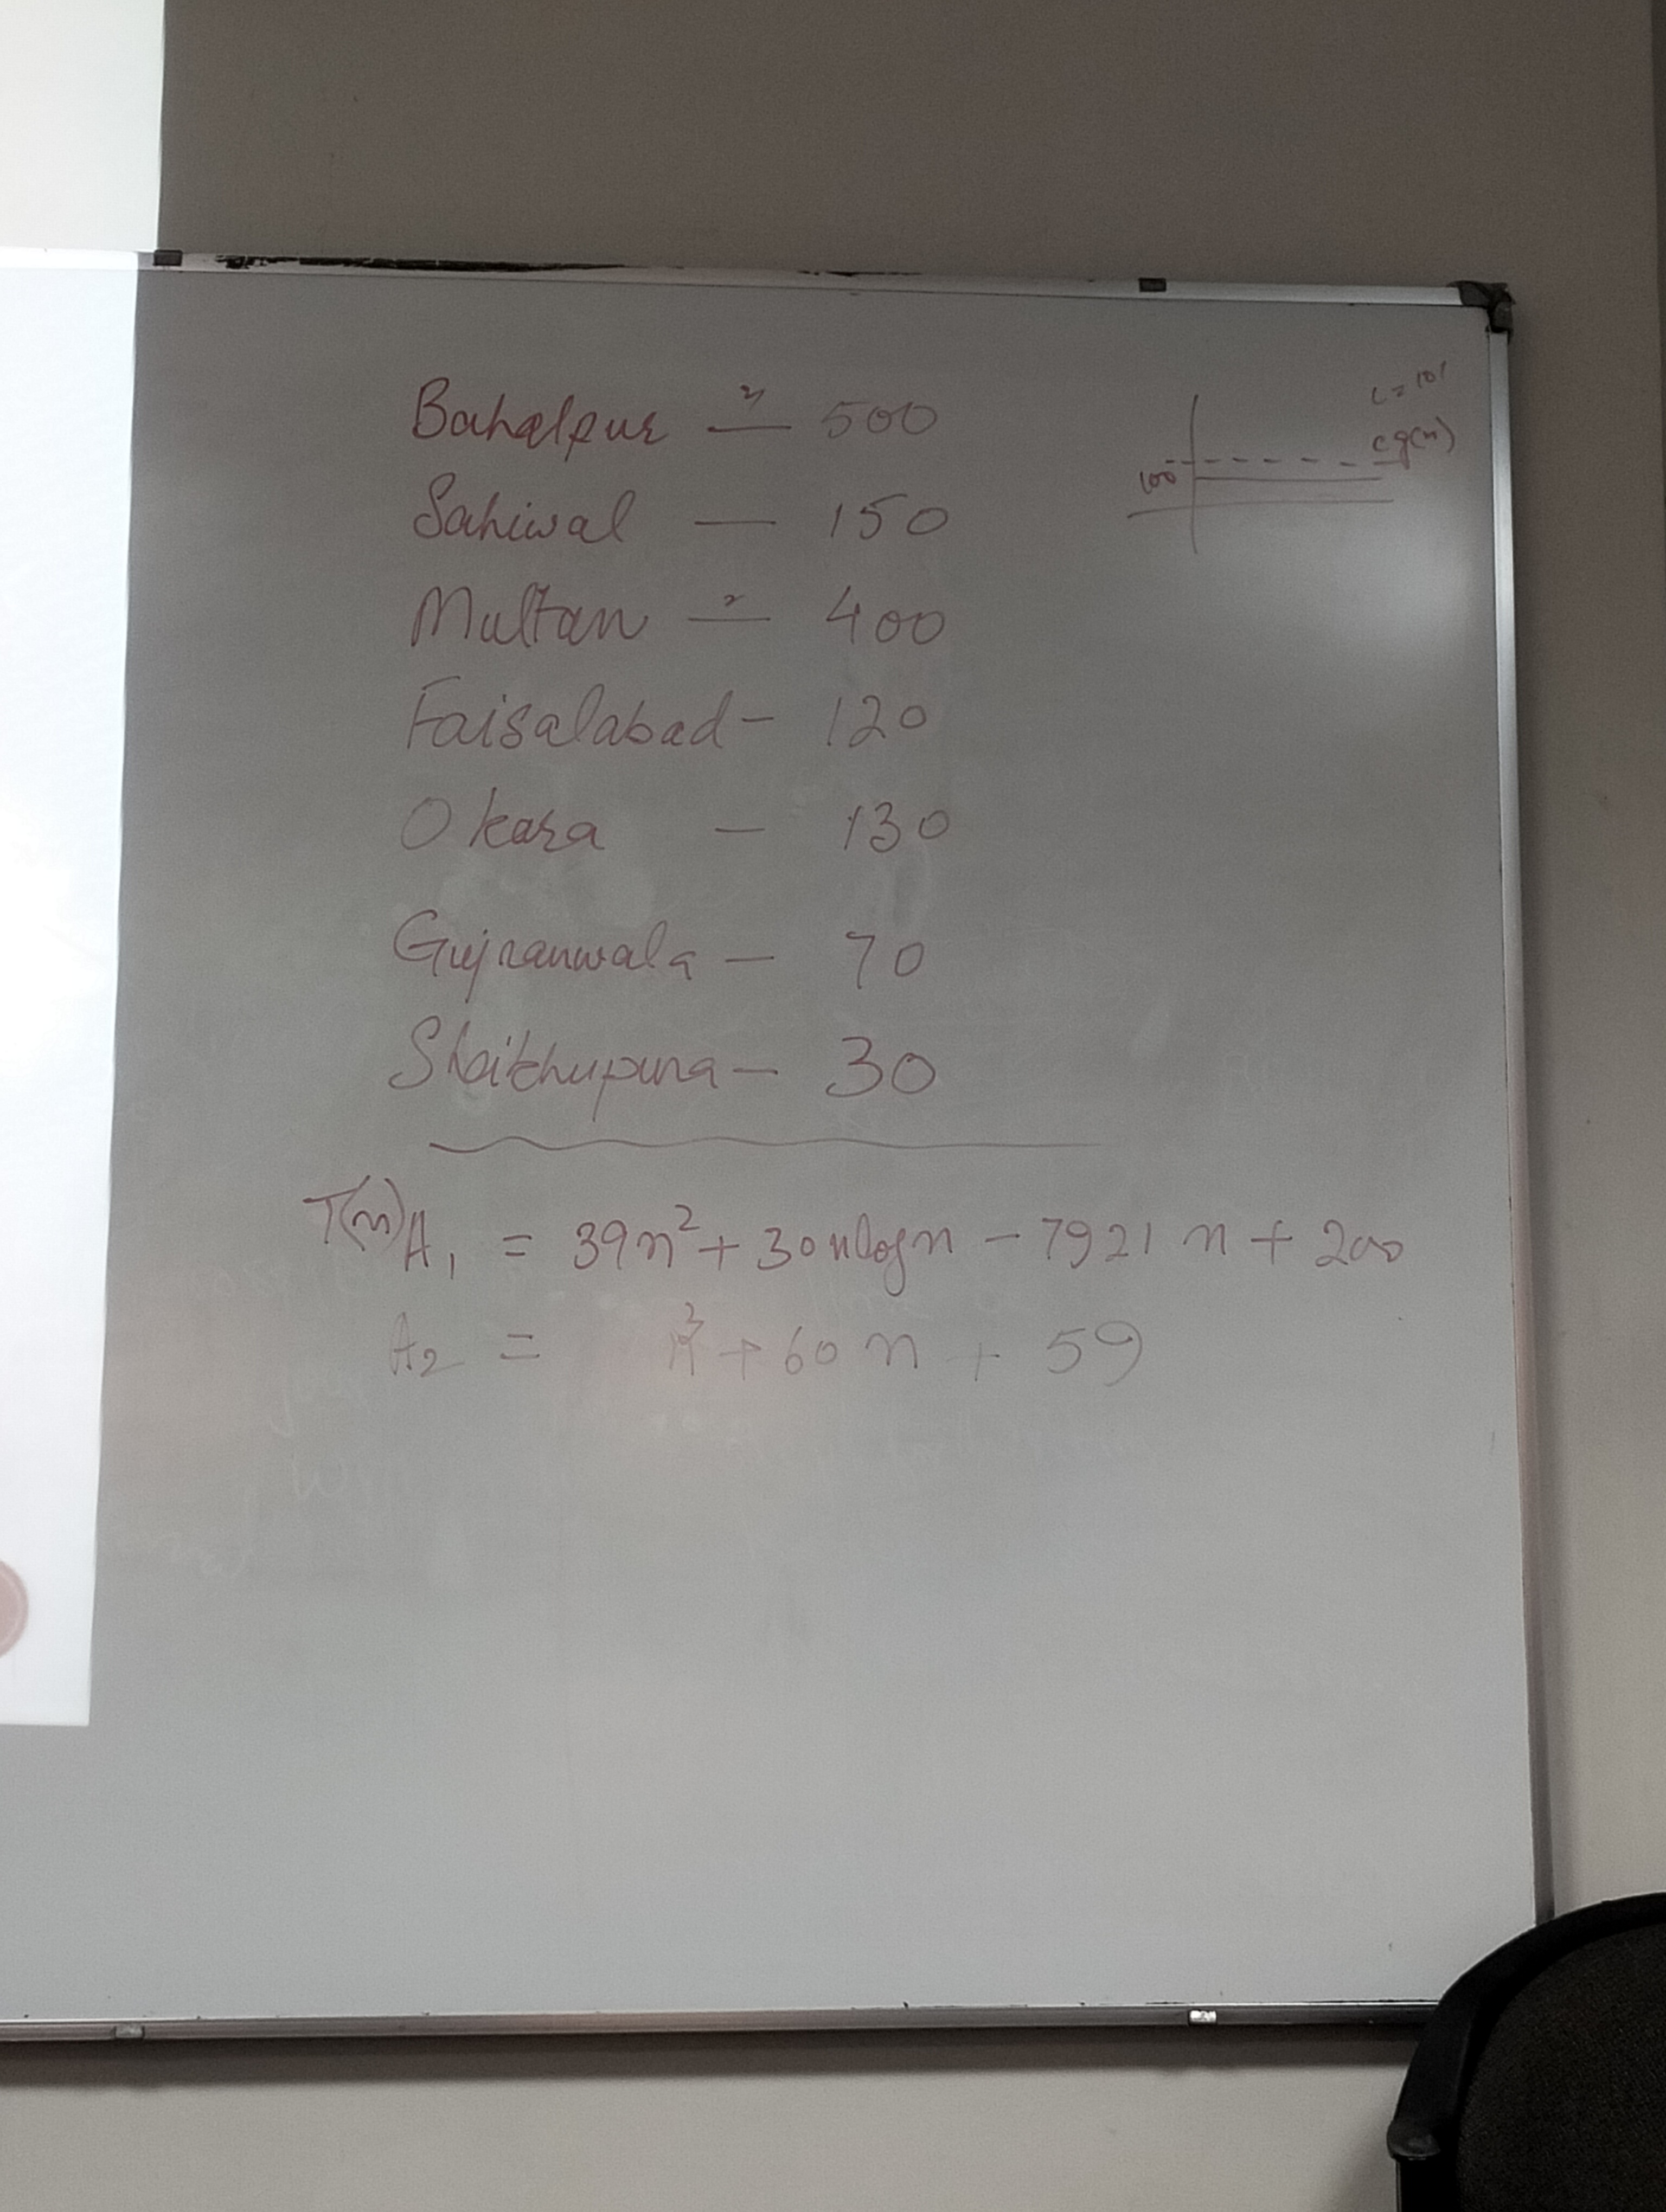 Bahalpur — 500
Sahiwal — 150
Multan — 400
Faisalabad - 120
Okara - 130
Gujranwala - 70
Shaikhupura - 30
T(n)A₁ = 39n² + 30nlogn - 7921 n + 200
A₂ = n³ + 60 n + 59
c = 101
cg(n)
100